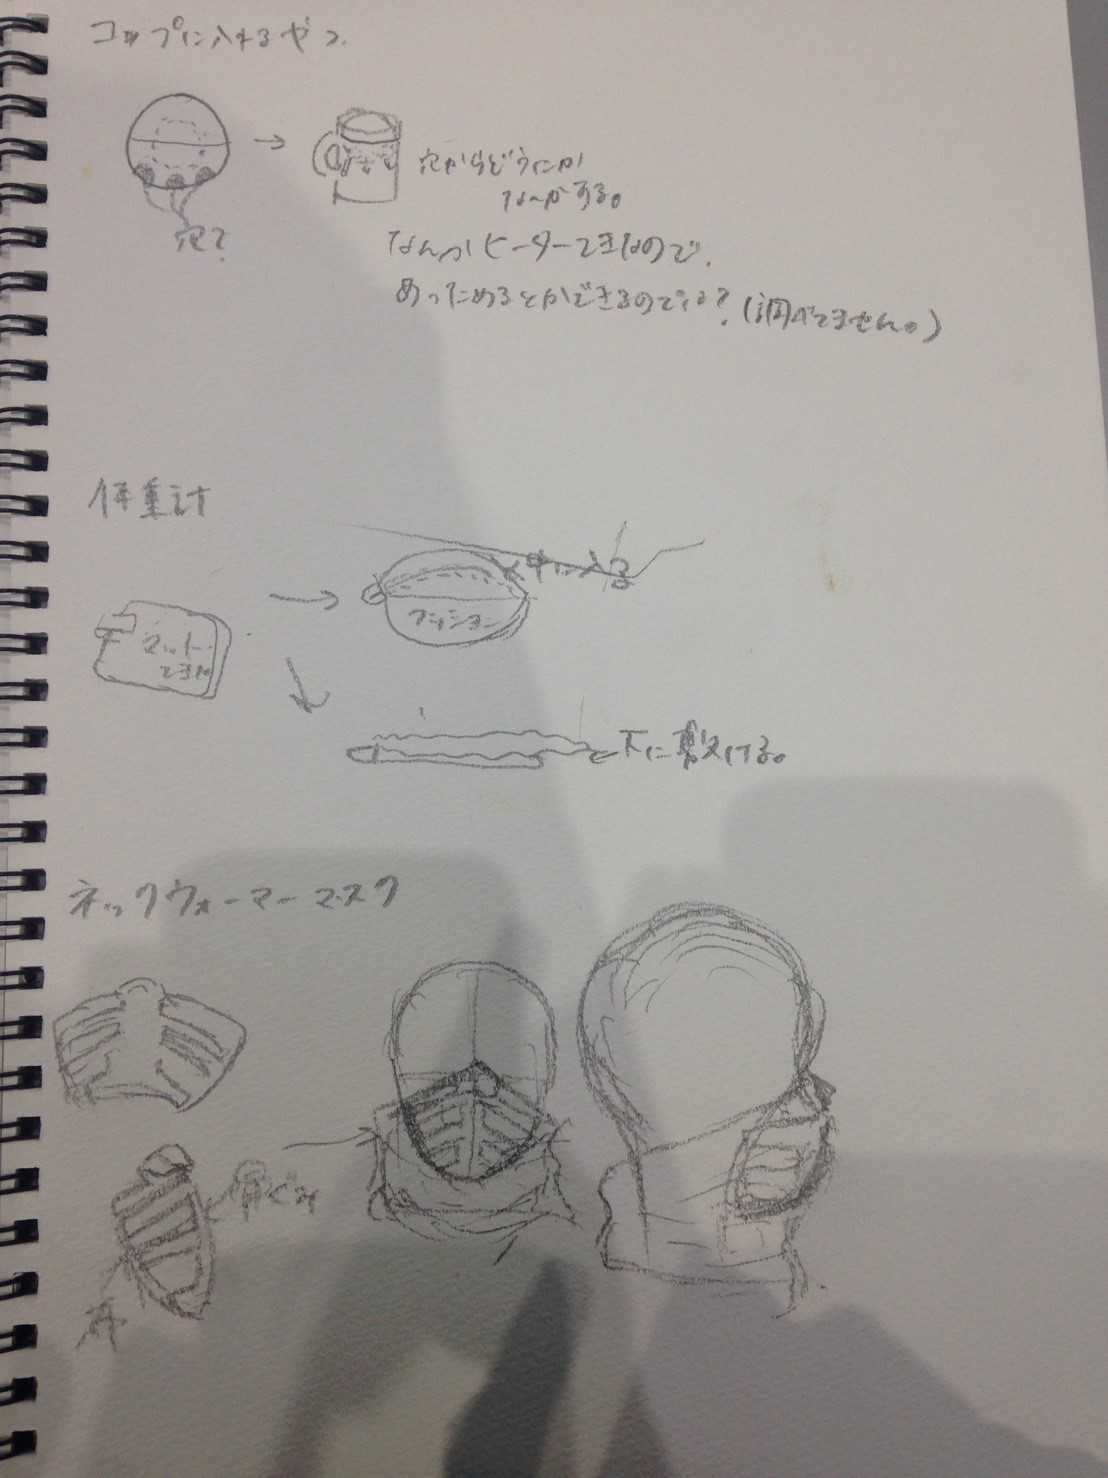 コップに入れるやつ
穴?
穴からどうにか
なんかする。
なんかヒーター的なので、
あっためるとかができるのでは?(調べてません。)
体重計
中に入る
クッション
マット
下に敷ける。
ネックウォーマーマスク
骨ぐみ